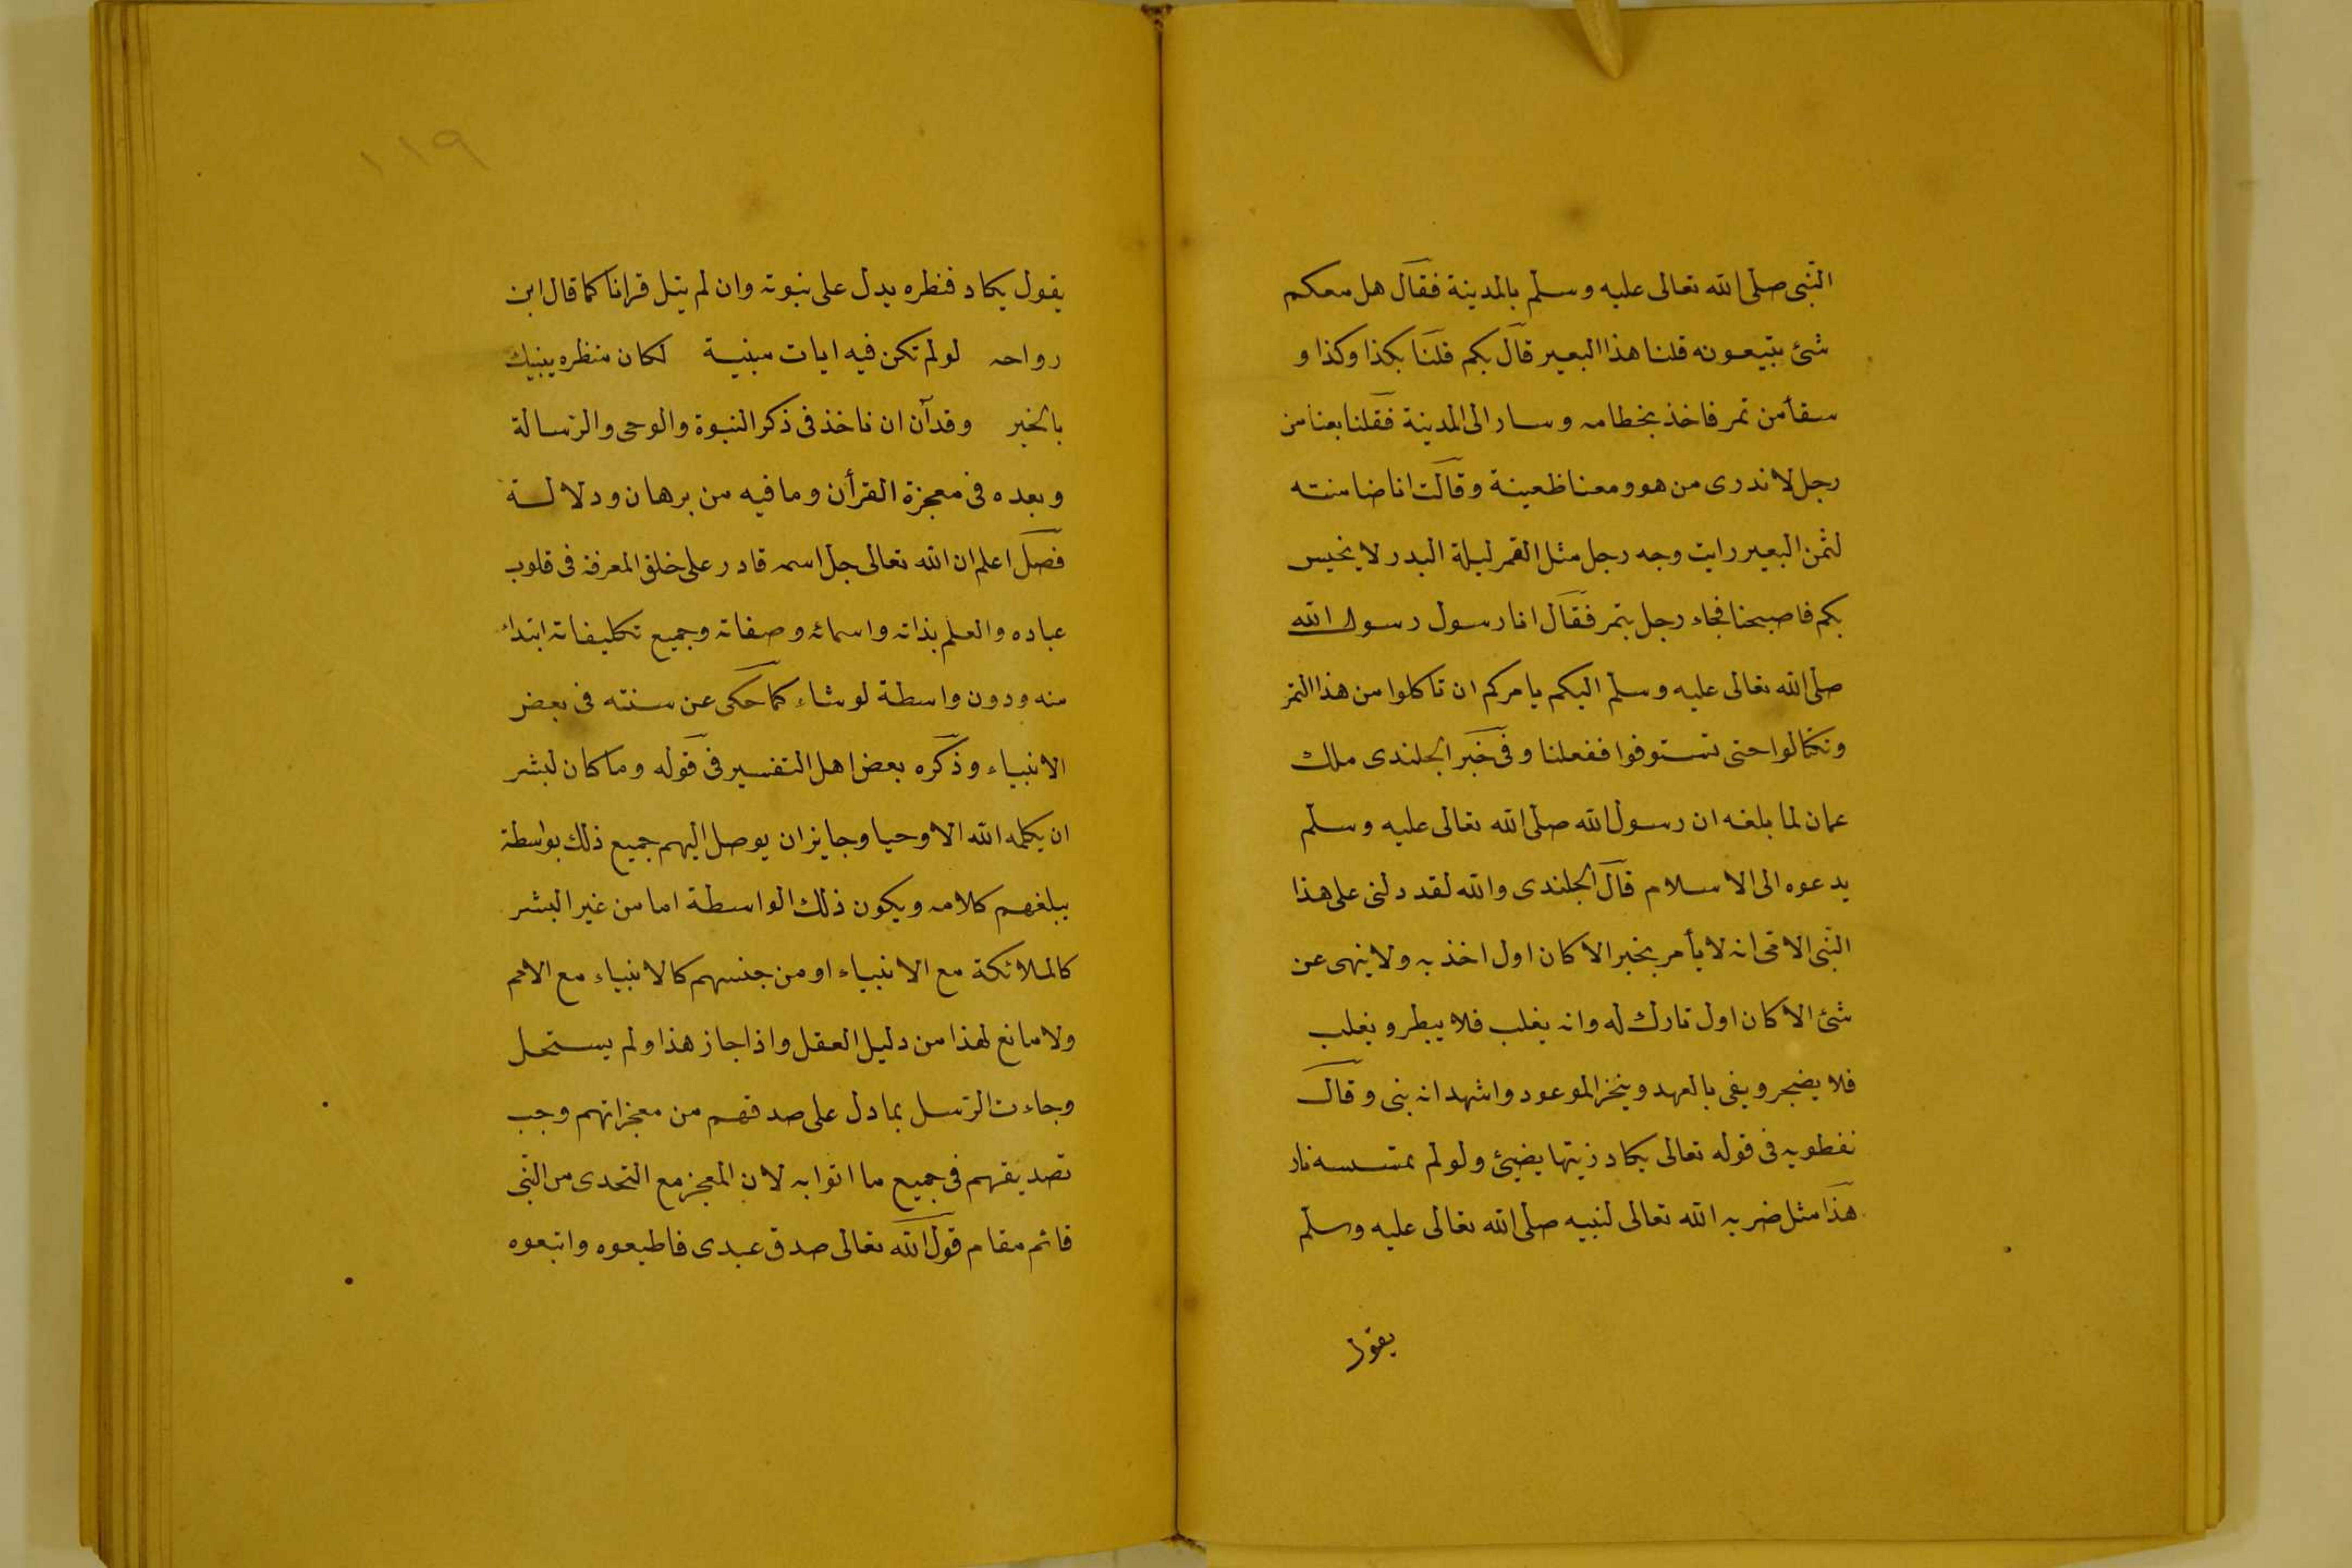 النّبى صلى الله تعالى عليه وسلم بالمدينة فقال هل معكم
شئ تبيعونه قلنا هذا البعير قال بكم قلنا بكذا وكذا و
سقأ من تمر فاخذ بخطامه وسار الى المدينة فقلنا بعنا من
رجل لا ندرى من هو ومعنا ظعينة وقالت انا ضامنته
لثمن البعير رايت وجه رجل مثل القمر ليلة البدر لا يخيس
بكم فاصبحنا فجاء رجل بتمر فقال انا رسول رسول الله
صلى الله تعالى عليه وسلم اليكم يامركم ان تاكلوا من هذا التمر
وتكتالوا حتى تستوفوا ففعلنا وفى خبر الجلندى ملك
عمان لما بلغه ان رسول الله صلى الله تعالى عليه وسلم
يدعوه الى الاسلام قال الجلندى والله لقد دلنى على هذا
النّبى الامى انه لا يأمر بخير الا كان اول اخذ به ولا ينهى عن
شئ الا كان اول تارك له وانه يغلب فلا يبطر ويغلب
فلا يضجر ويفى بالعهد وينجز الموعود واشهد انه بنى وقال
نفطويه فى قوله تعالى يكاد زيتها يضيئ ولو لم تمسسه نار
هذا مثل ضربه الله تعالى لنبيه صلى الله تعالى عليه وسلم
يقول
١١٩
يقول يكاد فنظره يدل على نبوته وان لم يتل قرانا كما قال ابن
رواحه لو لم تكن فيه ايات مبنية لكان منظره ينبيك
بالخبر وقد آن ان ناخذ فى ذكر النبوة والوحى والرّسالة
وبعده فى معجزة القرأن وما فيه من برهان ودلالة
فصل اعلم ان الله تعالى جل اسمه قادر على خلق المعرفة فى قلوب
عباده والعلم بذاته واسمائه وصفاته وجميع تكليفاته ابتداء
منه ودون واسطة لو شاء كما حكى عن سنته فى بعض
الانبياء وذكره بعض اهل التفسير فى قوله وما كان لبشر
ان يكلمه الله الا وحيا وجايز ان يوصل اليهم جميع ذلك بواسطة
يبلغهم كلامه ويكون ذلك الواسطة اما من غير البشر
كالملائكة مع الانبياء او من جنسهم كالانبياء مع الامم
ولا مانع لهذا من دليل العقل واذا جاز هذا ولم يستحل
وجاءت الرّسل بما دل على صدقهم من معجزاتهم وجب
تصديقهم فى جميع ما اتوا به لان المعجز مع التحدى من النّبى
قائم مقام قول الله تعالى صدق عبدى فاطيعوه واتبعوه